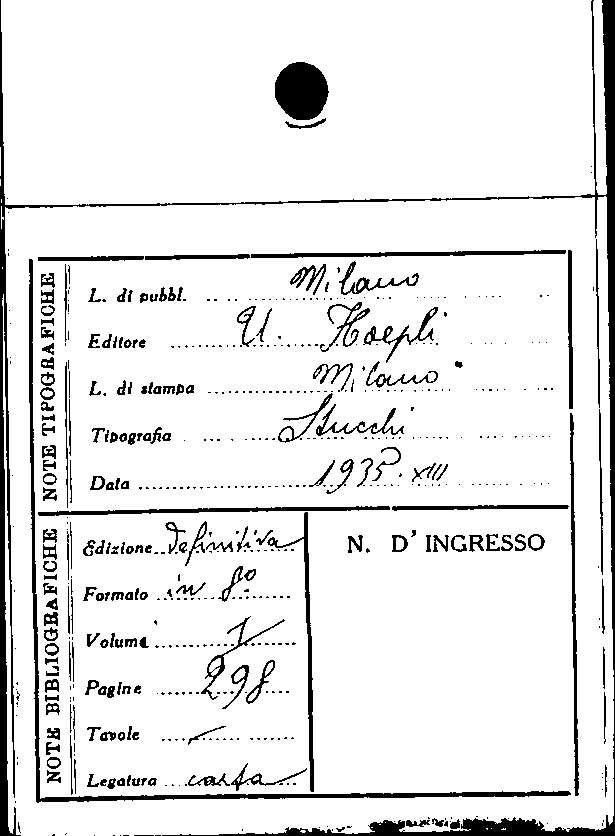 NOTE TIPOGRAFICHE
L. di pubbl. Milano
Editore U. Hoepli
L. di stampa Milano
Tipografia Stucchi
Data 1935. XIII
NOTE BIBLIOGRAFICHE
Edizione definitiva
Formato in 8º
Volume 1
Pagine 298
Tavole —
Legatura carta
N. D' INGRESSO